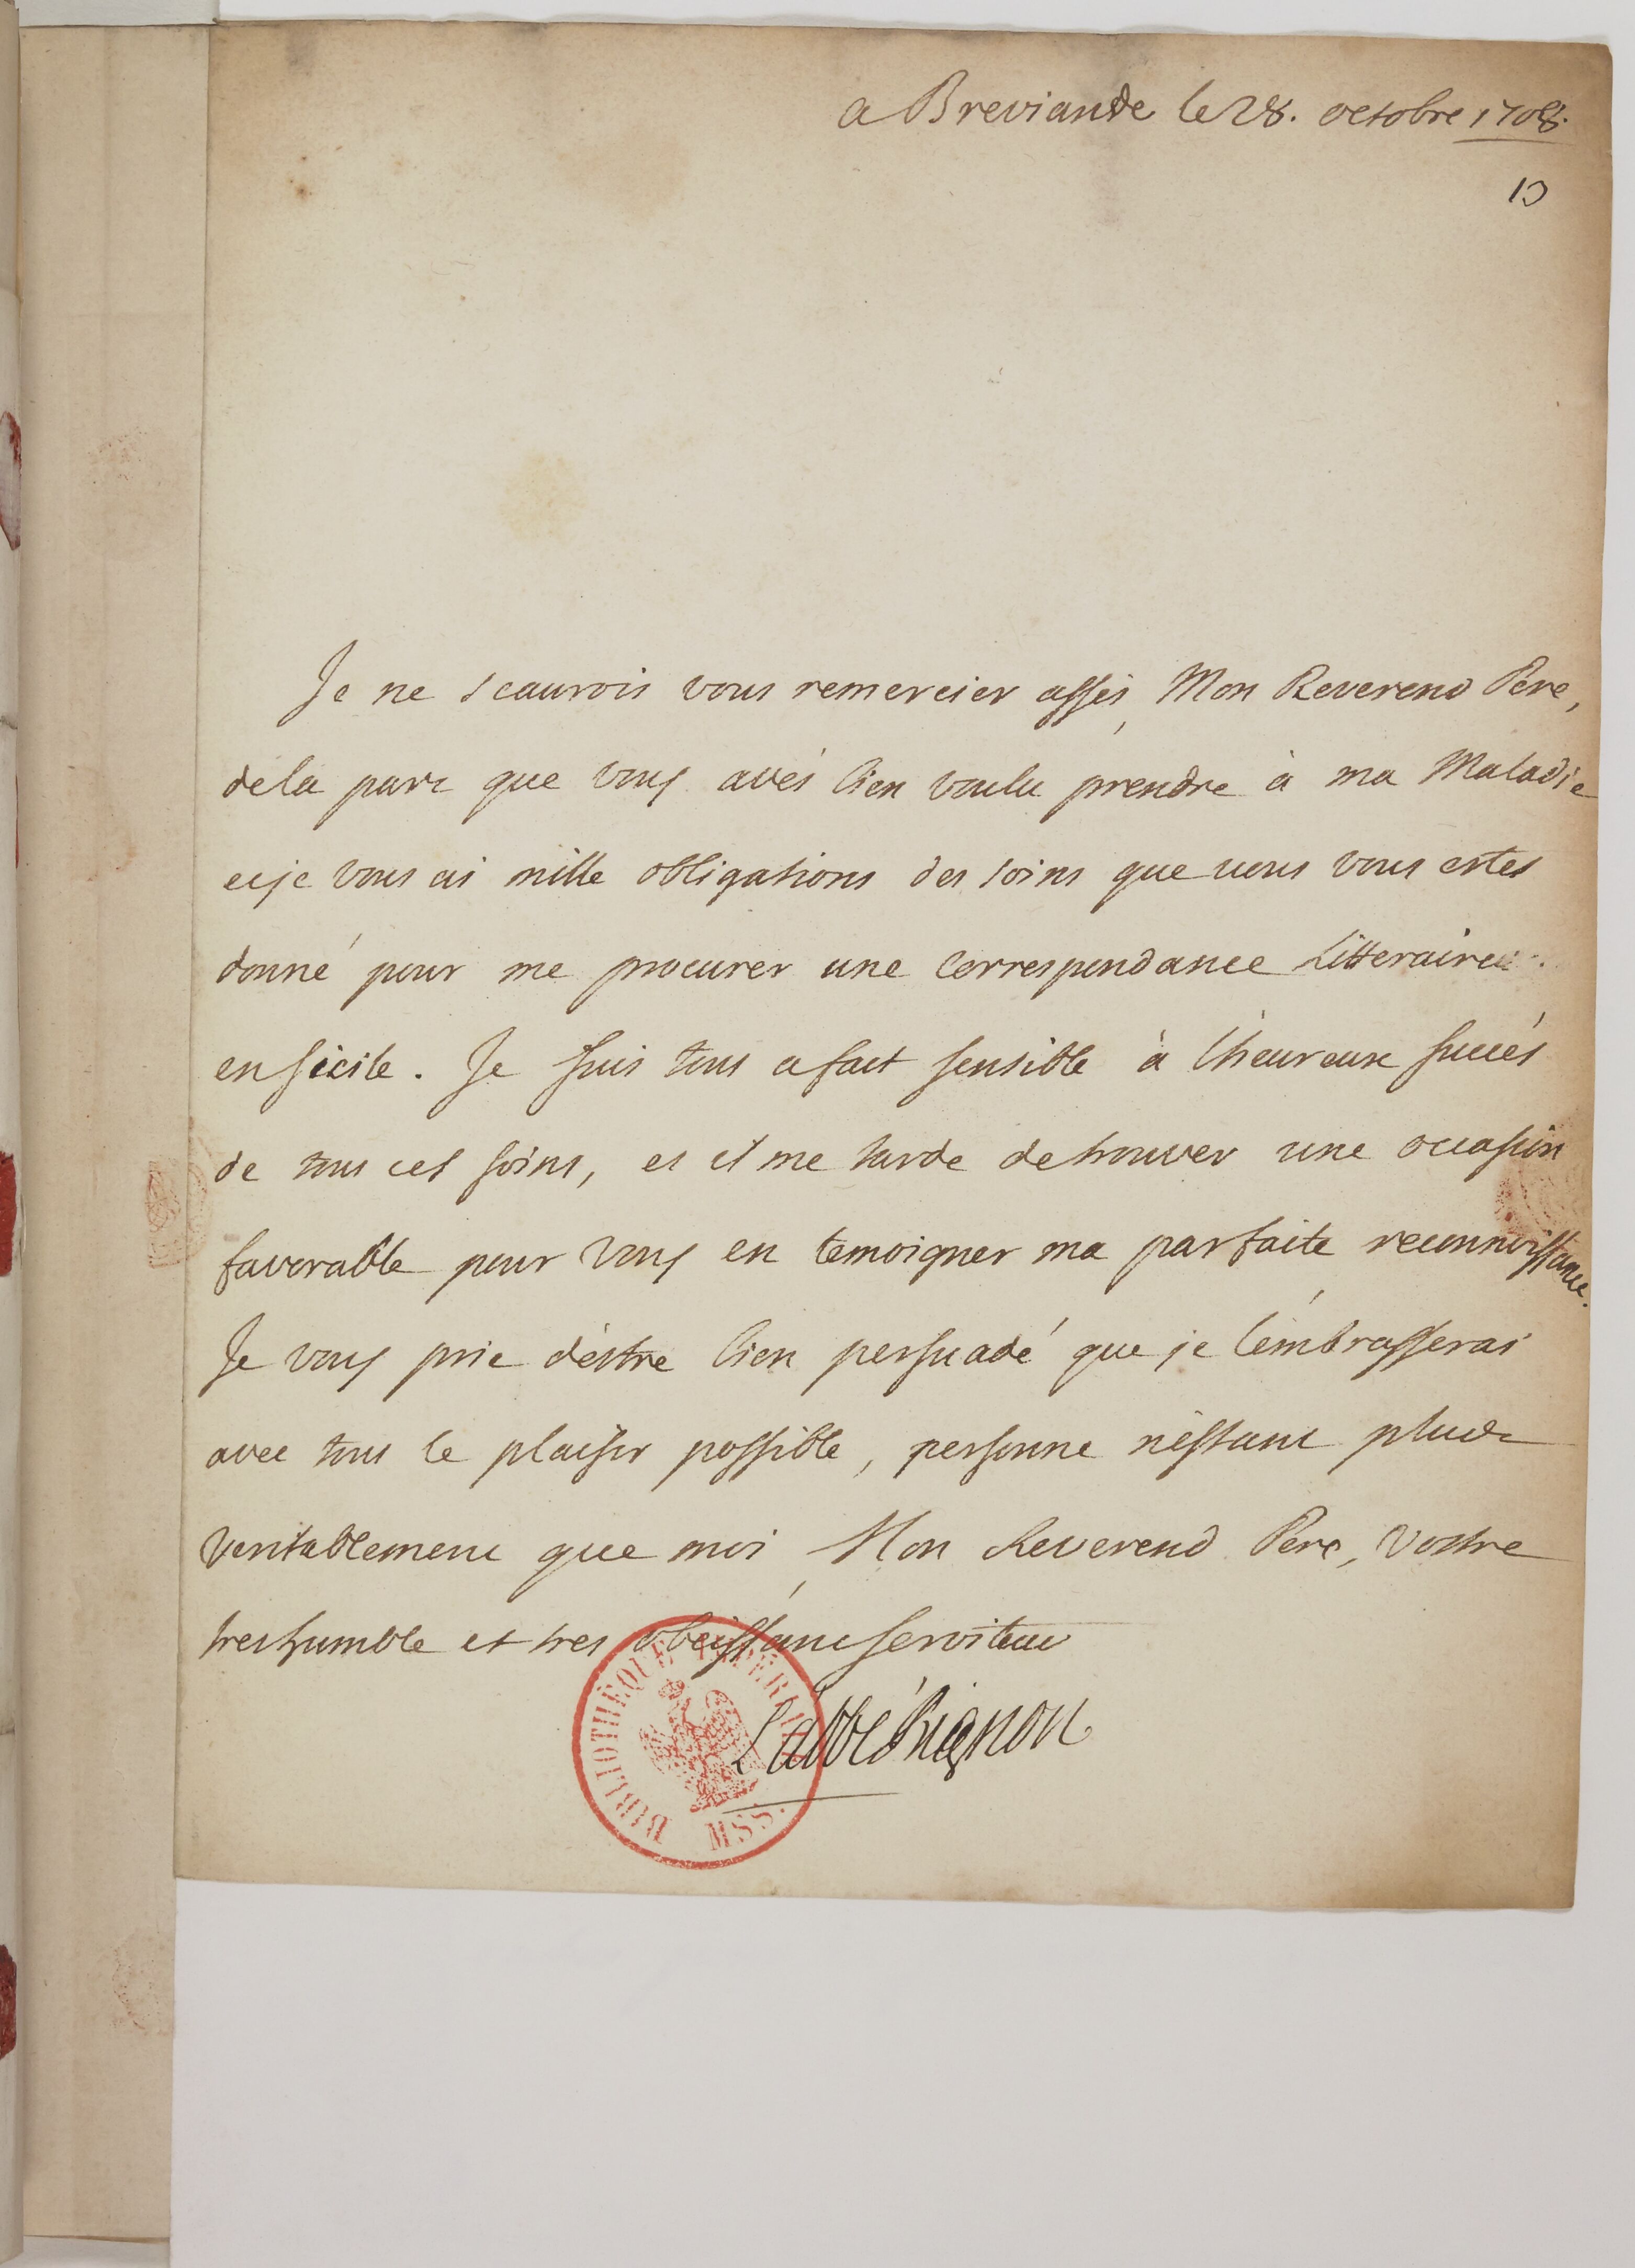 a Breviande le 28. octobre 1708.
13
Je ne scaurois vous remercier assés, Mon Reverend Pere,
dela part que vous avés bien voulu prendre à ma Maladie
et je vous ai mille obligations des soins que vous vous estes
donné pour me procurer une Correspondance Litteraire
en sicile. Je suis tout a fait sensible à l'heureux succés
de tous ces soins, et il me tarde de trouver une occasion
favorable pour vous en temoigner ma parfaite reconnoissance.
Je vous prie d'estre bien persuadé que je l'embrasserai
avec tout le plaisir possible, personne n'estant plus
veritablement que moi, Mon Reverend Pere, Vostre
tres humble et tres obeissant serviteur
L'abbé Bignon
BIBLIOTHÈQUE IMPÉRIALE
MSS.